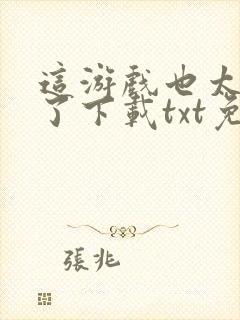 這游戲也太
了下載txt免
張兆